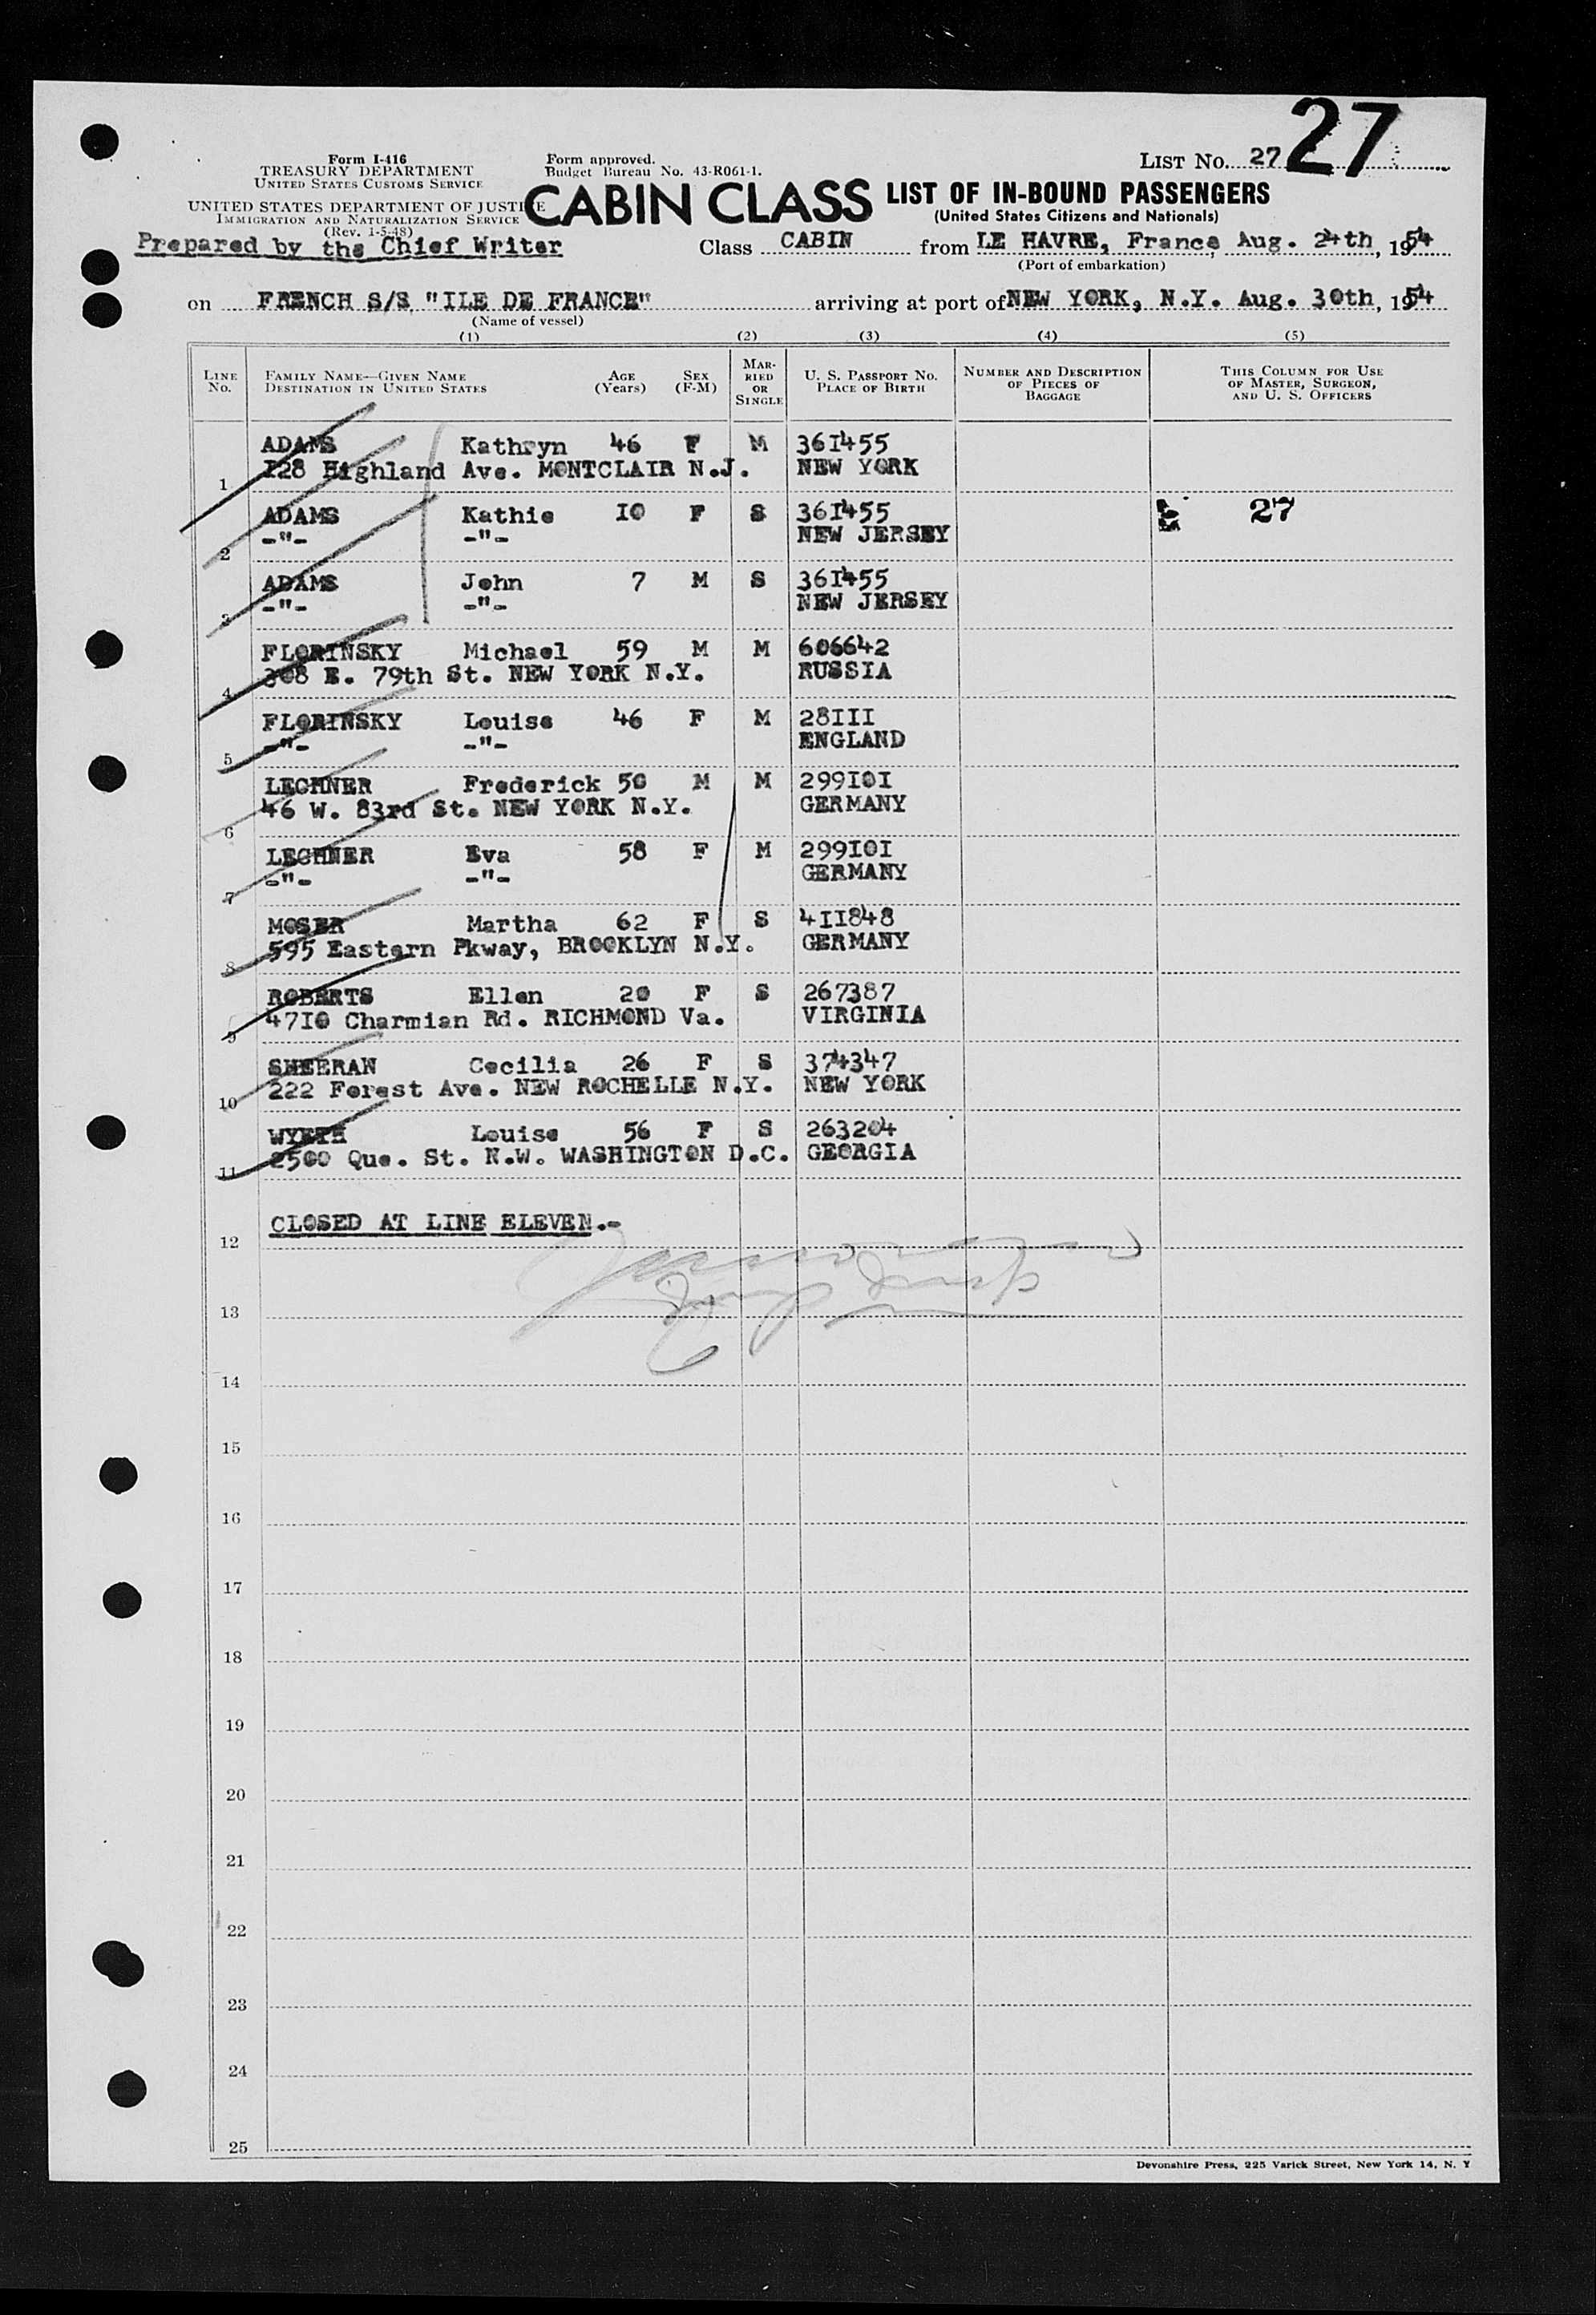 27
Form I-416
TREASURY DEPARTMENT
UNITED STATES CUSTOMS SERVICE
UNITED STATES DEPARTMENT OF JUSTICE
IMMIGRATION AND NATURALIZATION SERVICE
(Rev. 1-5-48)
Form approved.
Budget Bureau No. 43-R061-1.
LIST No. 27
CABIN CLASS LIST OF IN-BOUND PASSENGERS
(United States Citizens and Nationals)
Prepared by the Chief Writer
Class CABIN from LE HAVRE, France, Aug. 24th, 1954
(Port of embarkation)
on FRENCH S/S "ILE DE FRANCE" arriving at port of NEW YORK, N.Y. Aug. 30th, 1954
(Name of vessel)
(1) (2) (3) (4) (5)
LINE No. FAMILY NAME—GIVEN NAME DESTINATION IN UNITED STATES AGE (Years) SEX (F-M) MARRIED OR SINGLE U. S. PASSPORT NO. PLACE OF BIRTH NUMBER AND DESCRIPTION OF PIECES OF BAGGAGE THIS COLUMN FOR USE OF MASTER, SURGEON, AND U. S. OFFICERS
ADAMS Kathryn 46 F M 36I455
1 128 Highland Ave. MONTCLAIR N.J. NEW YORK
ADAMS Kathie I0 F S 36I455 27
2 -"- -"- NEW JERSEY
ADAMS John 7 M S 36I455
3 -"- -"- NEW JERSEY
FLORINSKY Michael 59 M M 606642
4 308 E. 79th St. NEW YORK N.Y. RUSSIA
FLORINSKY Louise 46 F M 28III
5 -"- -"- ENGLAND
LECHNER Frederick 50 M M 299I0I
6 46 W. 83rd St. NEW YORK N.Y. GERMANY
LECHNER Eva 58 F M 299I0I
7 -"- -"- GERMANY
MOSER Martha 62 F S 4II848
8 595 Eastern Pkway, BROOKLYN N.Y. GERMANY
ROBERTS Ellen 20 F S 267387
9 47I0 Charmian Rd. RICHMOND Va. VIRGINIA
SHEERAN Cecilia 26 F S 374347
10 222 Forest Ave. NEW ROCHELLE N.Y. NEW YORK
WYETH Louise 56 F S 263204
11 2500 Que. St. N.W. WASHINGTON D.C. GEORGIA
CLOSED AT LINE ELEVEN.-
12
13
14
15
16
17
18
19
20
21
22
23
24
25
Devonshire Press, 225 Varick Street, New York 14, N. Y